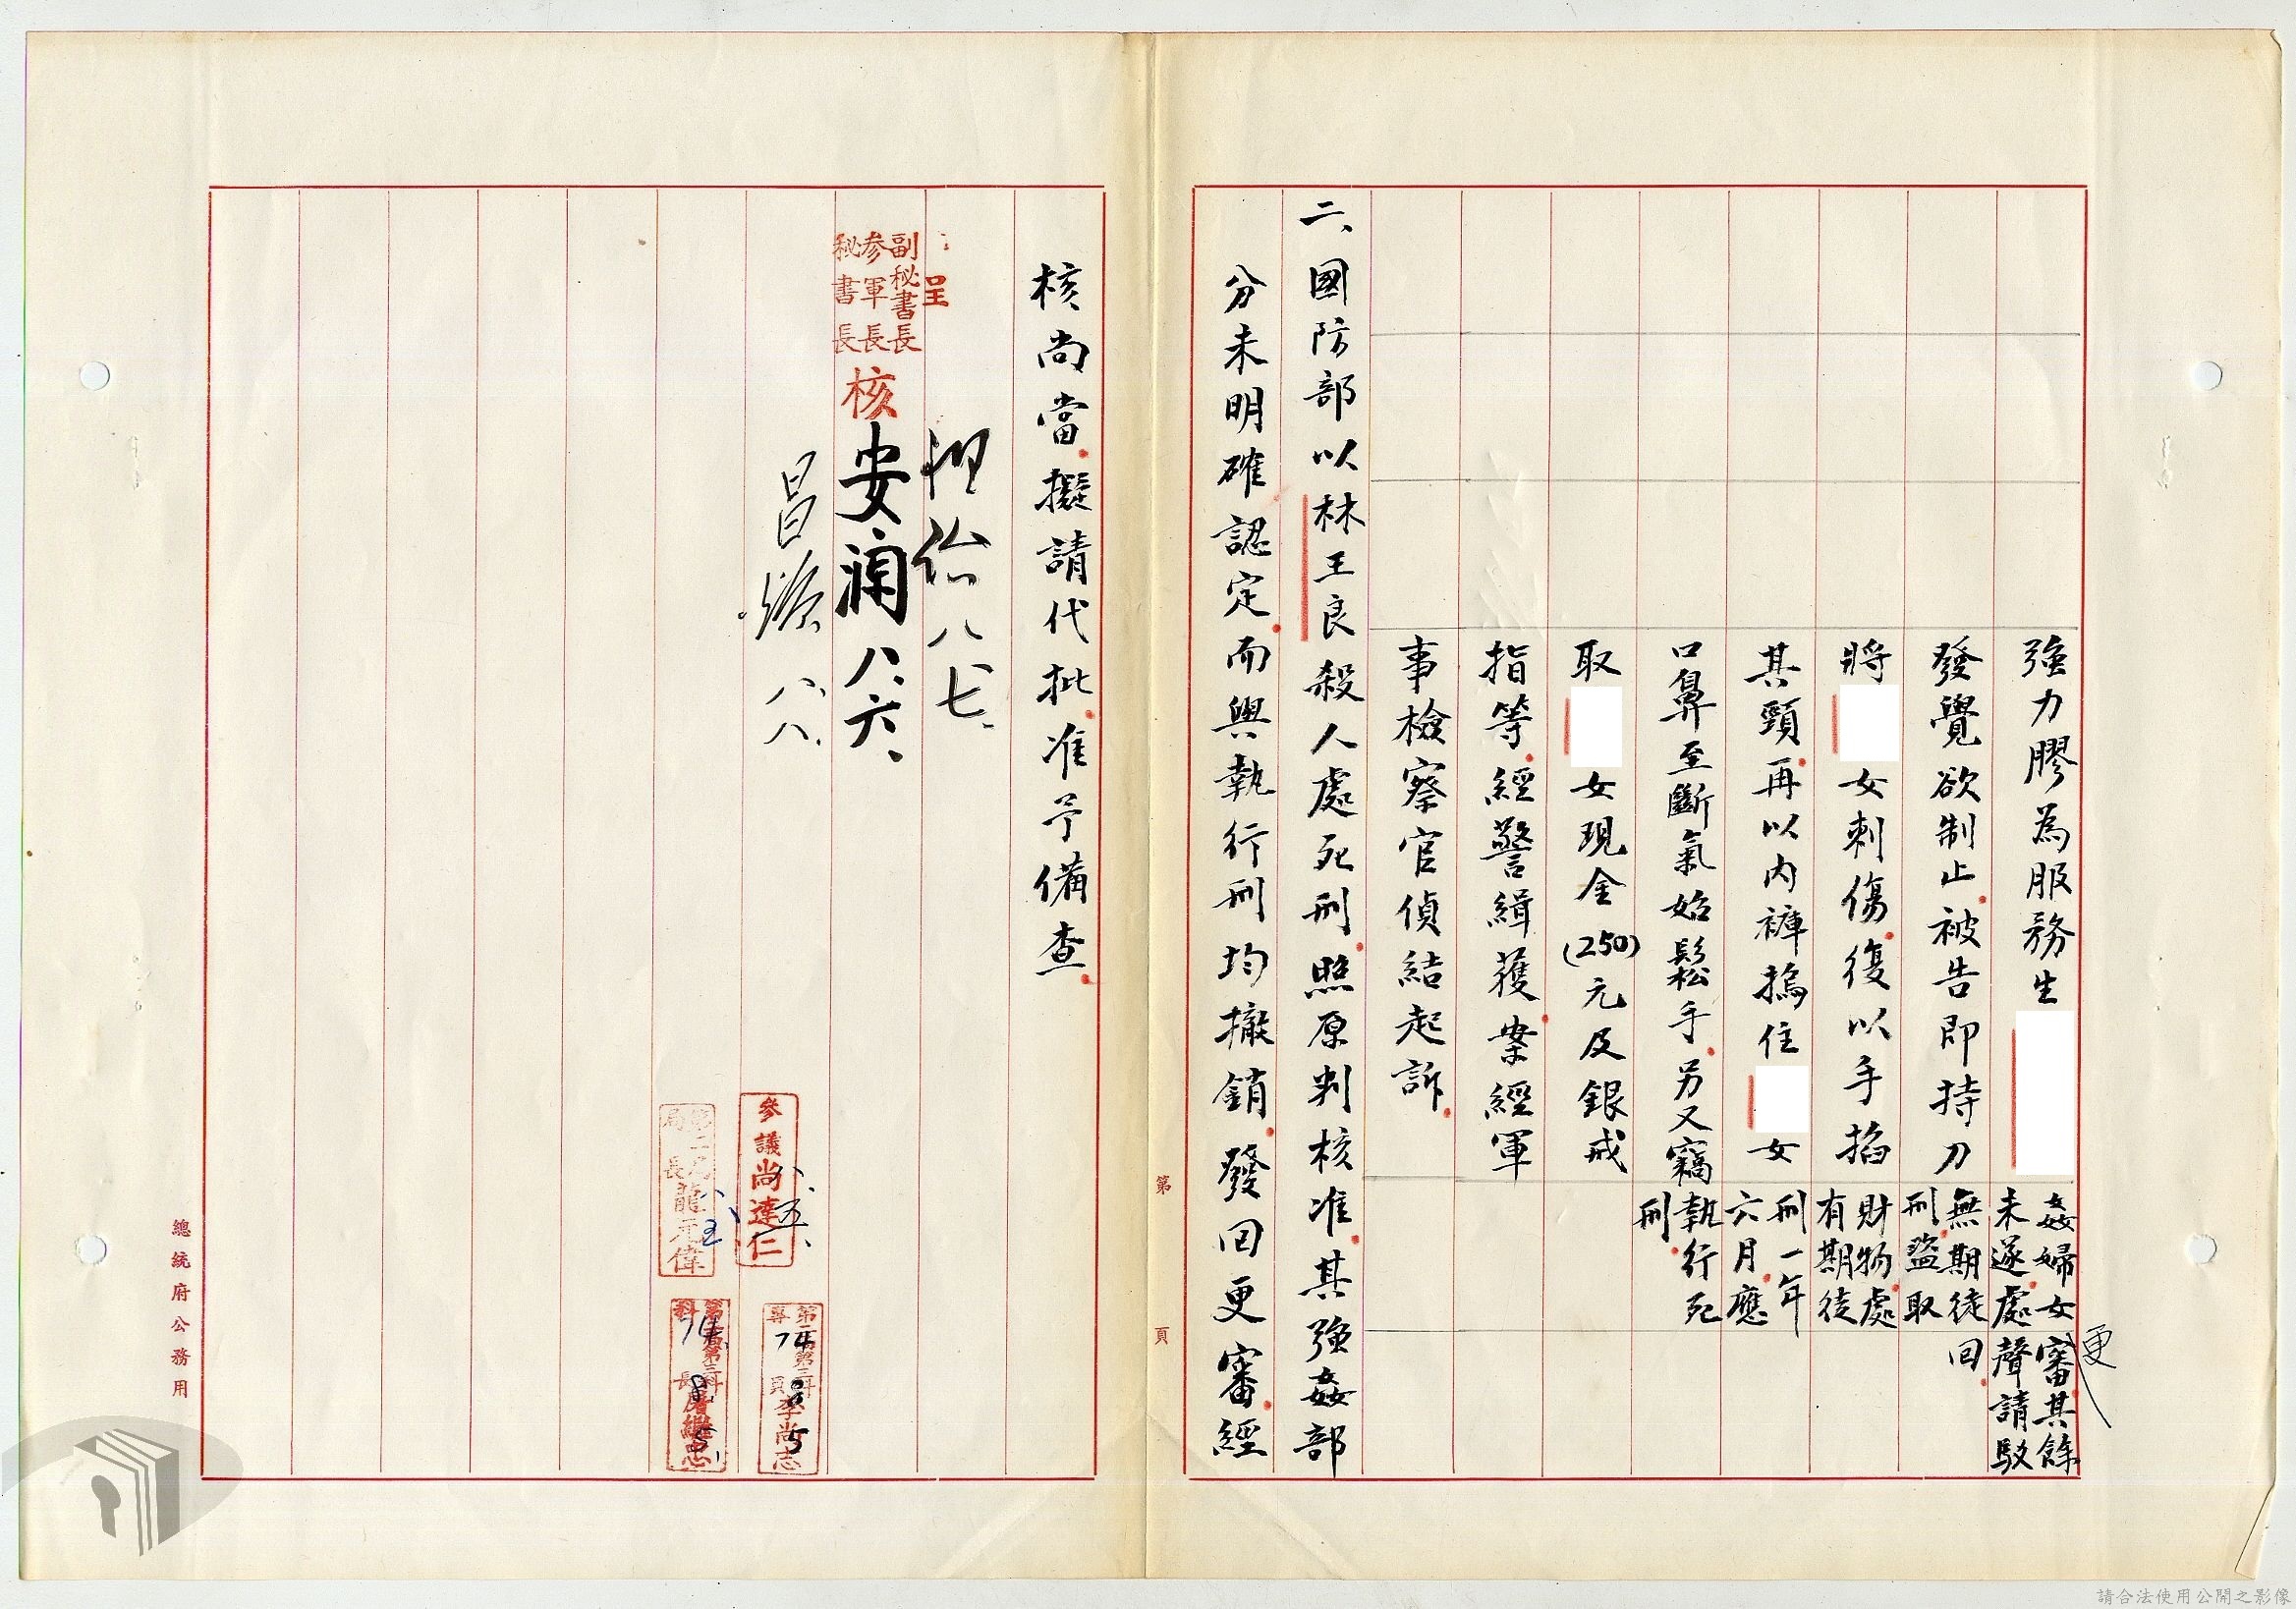 強力膠為服務生
發覺欲制止被告即持刀
將女刺傷復以手掐
其頸再以內褲摀住女
口鼻至斷氣始鬆手另又竊
取女現金(250)元及銀戒
指等經警緝獲案經軍
事檢察官偵結起訴
姦婦女
未遂處
無期徒
刑盜取
財物處
有期徒
刑一年
六月應
執行死
刑
更
審其餘
聲請駁
回
二、國防部以林王良殺人處死刑照原判核准其強姦部
分未明確認定而與執行刑均撤銷發回更審經
第 頁
核尚當擬請代批准予備查
呈
副秘書長
參軍長
秘書長
核
八七
安瀾 八六
昌煥 八八
參議尚達仁
八五
第二局
局長龍元偉
第二局第三科
專員李尚志
74 8 5
第二局第三科
科長唐繼忠
總統府公務用
請合法使用公開之影像